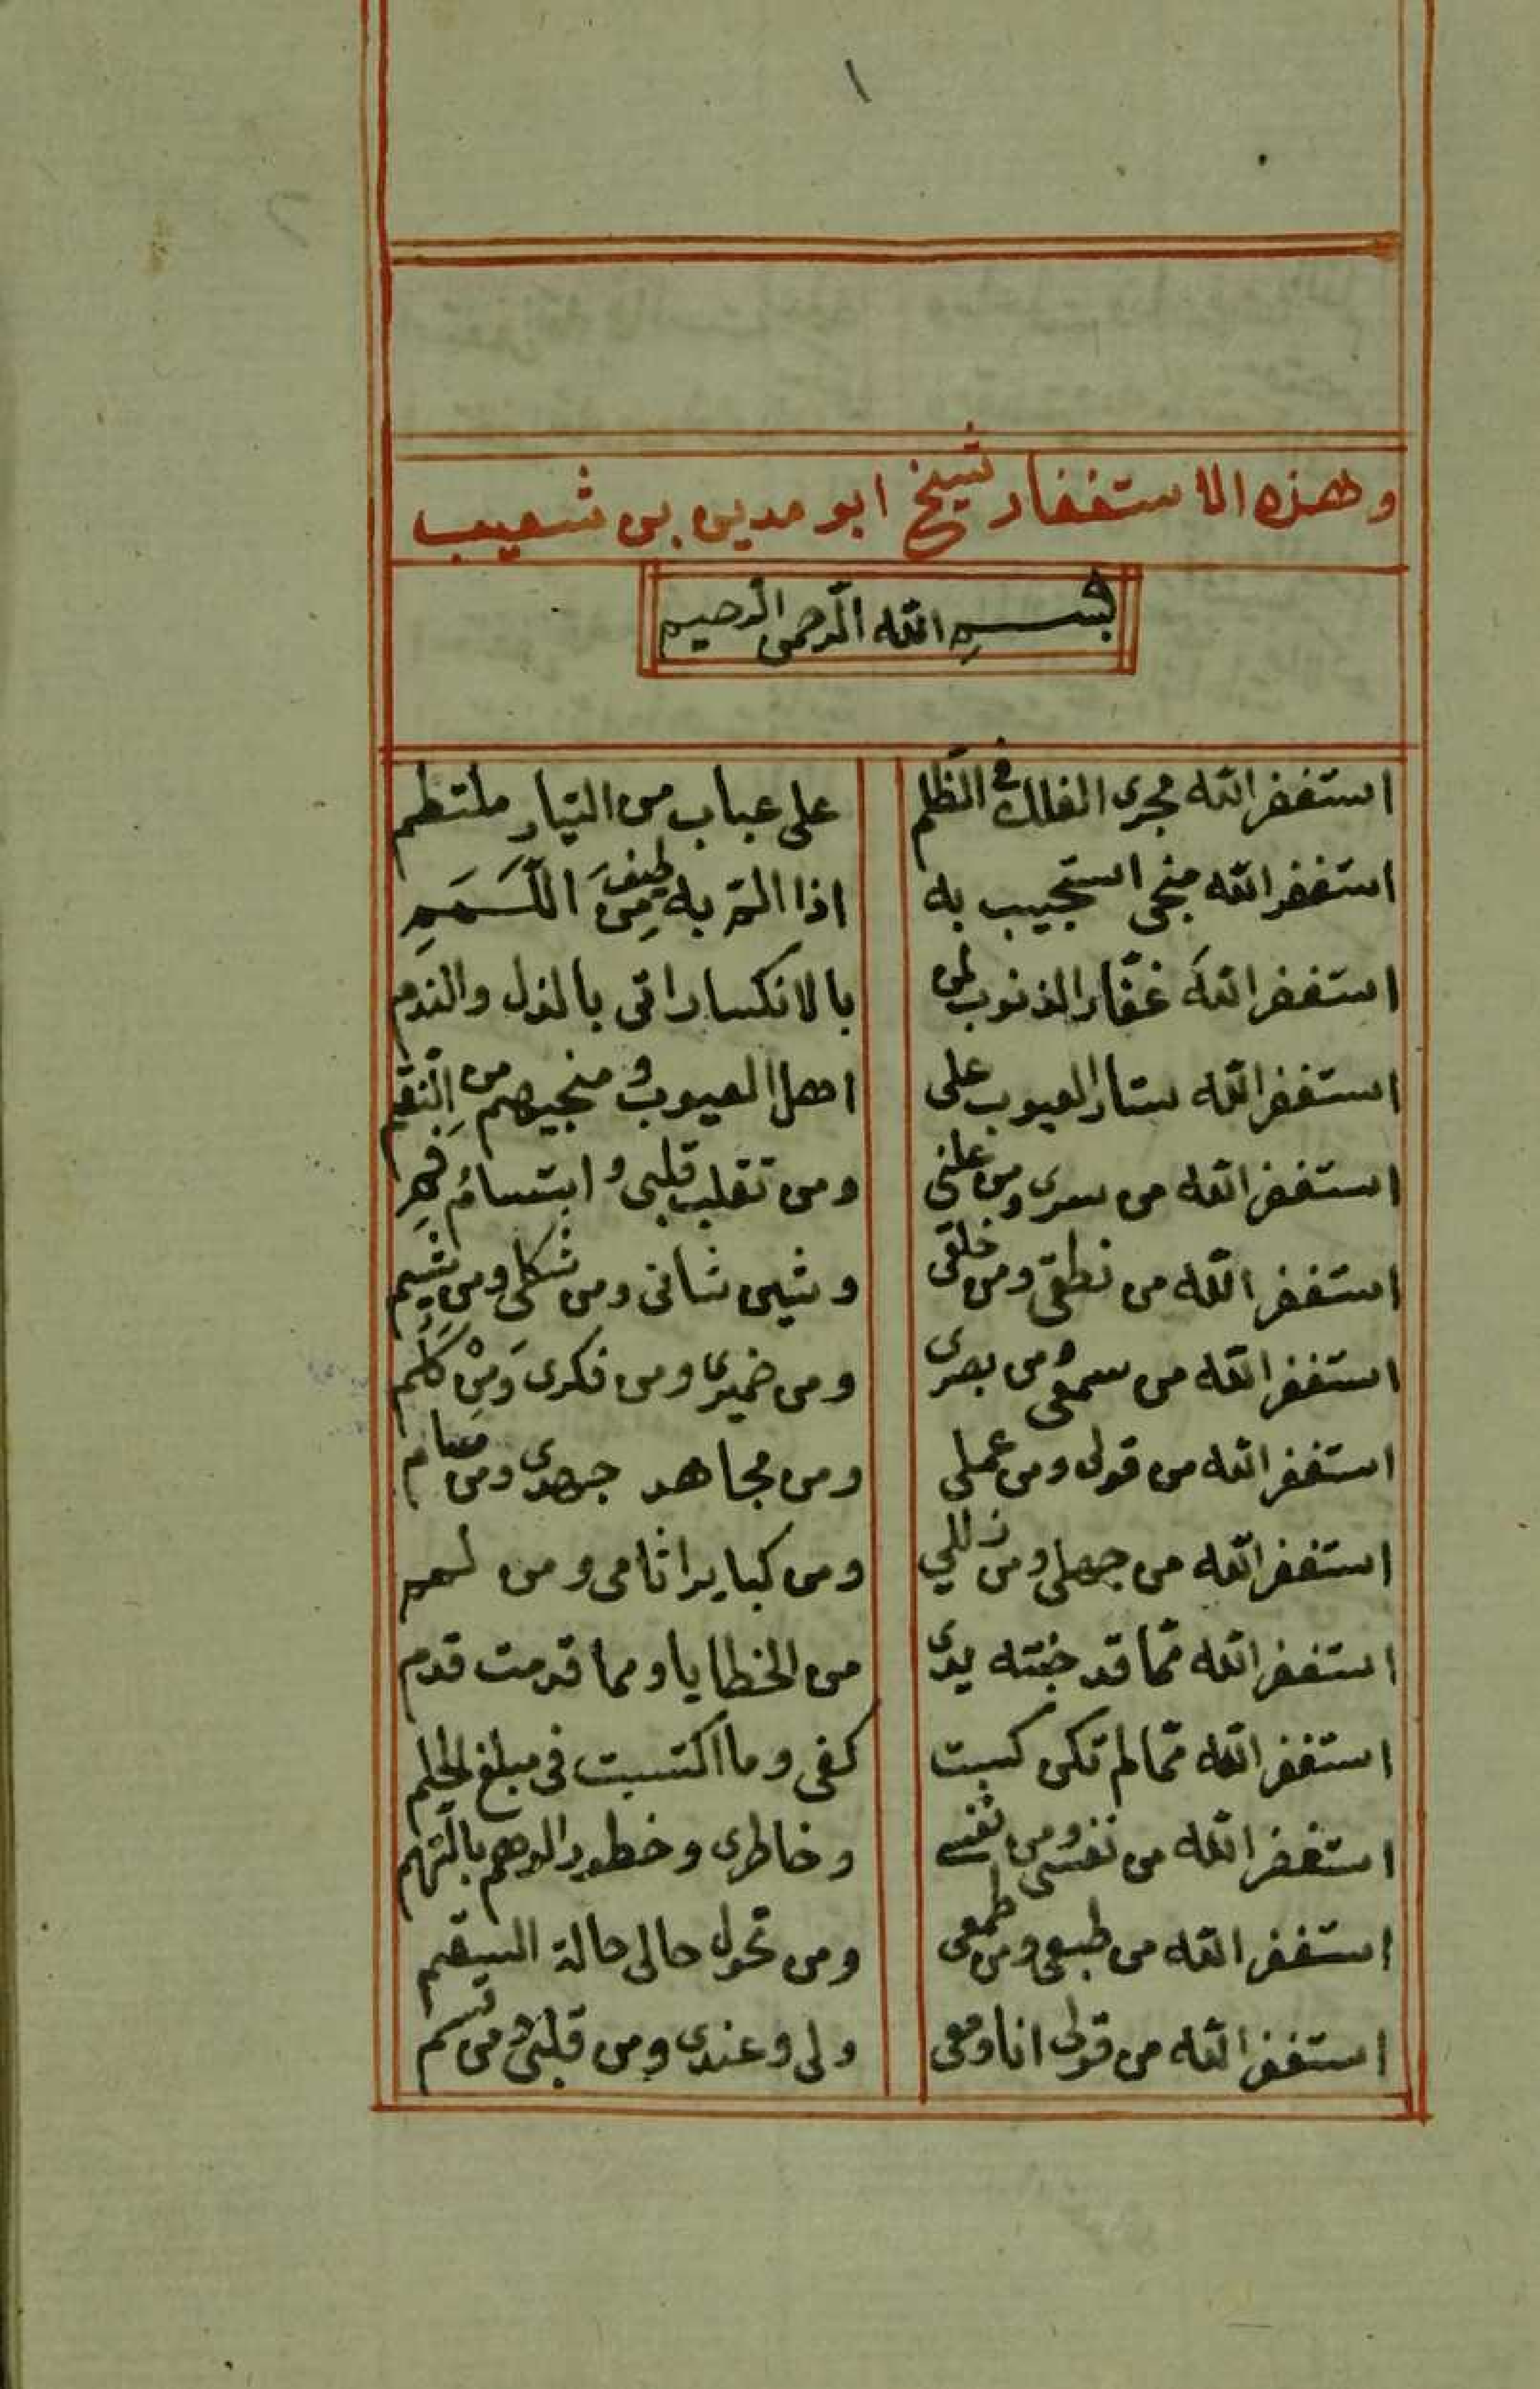 ١
وهذه الاستغفار شيخ ابو مدين بن شعيب
بسم الله الرحمن الرحيم
استغفر الله مجرى الفلك فى الظلم على عباب من التيار ملتطم
استغفر الله منجى استجيب به اذا الم به طيف من اللمم
استغفر الله غفار الذنوب لمن بالانكسار اتى بالذل والندم
استغفر الله ستار العيوب على اهل العيوب و منجيهم من النقم
استغفر الله من سرى ومن علنى ومن تقلب قلبى و ابتسام فم
استغفر الله من نطقى ومن خلقى وشين شانى ومن شكلى ومن شيم
استغفر الله من سمعى و من بصرى ومن ضميرى ومن فكرى ومن كلم
استغفر الله من قولى ومن عملى ومن مجاهد جهدى ومن
استغفر الله من جهلى ومن زللي ومن كباير اثامى ومن لمم
استغفر الله مما قد جنته يدى من الخطايا ومما قدمت قدم
استغفر الله مما لم تكن كسبت كفى وما اكتسبت فى مبلغ الحلم
استغفر الله من نفسى ومن نفسى وخاطرى وخطور الوهم بالتهم
استغفر الله من طبعى ومن طمعى ومن تحول حالى حالة السقم
استغفر الله من قولى انا ومعى ولى وعندى ومن قلبى و من